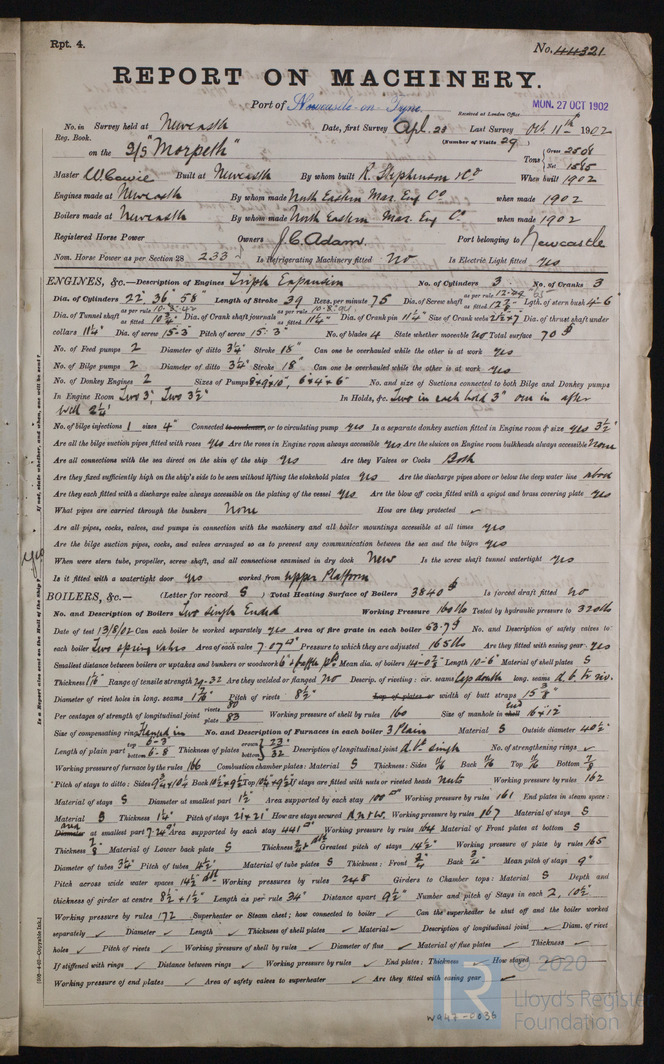 Rpt. 4. No. 44321
REPORT ON MACHINERY.
Port of Newcastle-on-Tyne
Received at London Office MON. 27 OCT 1902
No. in Survey held at Newcastle Date, first Survey Apl. 23 Last Survey Oct 11th 1902
Reg. Book. (Number of Visits 29)
on the S/S "Morpeth" Tons Gross Net
Master W. Cowie Built at Newcastle By whom built R. Stephenson & Co When built 1902
Engines made at Newcastle By whom made North Eastern Mar. Eng Co when made 1902
Boilers made at Newcastle By whom made North Eastern Mar. Eng Co when made 1902
Registered Horse Power Owners J. C. Adam. Port belonging to Newcastle
Nom. Horse Power as per Section 28 233 Is Refrigerating Machinery fitted No Is Electric Light fitted yes
ENGINES, &c.—Description of Engines Triple Expansion No. of Cylinders 3 No. of Cranks 3
Dia. of Cylinders 22" 36" 58" Length of Stroke 39 Revs. per minute 75 Dia. of Screw shaft as per rule as fitted Lgth. of stern bush 4-6"
Dia. of Tunnel shaft as per rule as fitted Dia. of Crank shaft journals as per rule as fitted 11¼" Dia. of Crank pin 11¼" Size of Crank webs 21½x7" Dia. of thrust shaft under
collars 11¼" Dia. of screw 15-3" Pitch of screw 15-3" No. of blades 4 State whether moveable No Total surface 70
No. of Feed pumps 2 Diameter of ditto 3¼" Stroke 18" Can one be overhauled while the other is at work yes
No. of Bilge pumps 2 Diameter of ditto 3¼" Stroke 18" Can one be overhauled while the other is at work yes
No. of Donkey Engines 2 Sizes of Pumps 8x9x10", 6x4x6" No. and size of Suctions connected to both Bilge and Donkey pumps
In Engine Room Two 3", Two 3½" In Holds, &c. Two in each hold 3" one in after
well 2½"
No. of bilge injections 1 sizes 4" Connected to condenser, or to circulating pump yes Is a separate donkey suction fitted in Engine room & size yes 3½"
Are all the bilge suction pipes fitted with roses yes Are the roses in Engine room always accessible yes Are the sluices on Engine room bulkheads always accessible None
Are all connections with the sea direct on the skin of the ship yes Are they Valves or Cocks Both
Are they fixed sufficiently high on the ship's side to be seen without lifting the stokehold plates yes Are the discharge pipes above or below the deep water line above
Are they each fitted with a discharge valve always accessible on the plating of the vessel yes Are the blow off cocks fitted with a spigot and brass covering plate yes
What pipes are carried through the bunkers None How are they protected ✓
Are all pipes, cocks, valves, and pumps in connection with the machinery and all boiler mountings accessible at all times yes
Are the bilge suction pipes, cocks, and valves arranged so as to prevent any communication between the sea and the bilges yes
When were stern tube, propeller, screw shaft, and all connections examined in dry dock New Is the screw shaft tunnel watertight yes
Is it fitted with a watertight door yes worked from upper Platform
BOILERS, &c.— (Letter for record S) Total Heating Surface of Boilers 3840 Is forced draft fitted no
No. and Description of Boilers Two Single Ended Working Pressure 160 lbs Tested by hydraulic pressure to 320 lbs
Date of test 13/8/02 Can each boiler be worked separately yes Area of fire grate in each boiler 63.7 No. and Description of safety valves to
each boiler Two spring valves Area of each valve 7.07 Pressure to which they are adjusted 165 lbs Are they fitted with easing gear yes
Smallest distance between boilers or uptakes and bunkers or woodwork Mean dia. of boilers 14-0½" Length 10-6" Material of shell plates S
Thickness Range of tensile strength 29-32 Are they welded or flanged No Descrip. of riveting: cir. seams lap double long seams d.b. tr riv.
Diameter of rivet holes in long. seams Pitch of rivets 8½" Lap of plates or width of butt straps
Per centages of strength of longitudinal joint rivets 80 plate 83 Working pressure of shell by rules 160 Size of manhole in end 16x12
Size of compensating ring Flanged in No. and Description of Furnaces in each boiler 3 Plain Material S Outside diameter 40½"
Length of plain part top 6-3 bottom 6-8 Thickness of plates crown 23 bottom 32 Description of longitudinal joint No. of strengthening rings ✓
Working pressure of furnace by the rules 166 Combustion chamber plates: Material S Thickness: Sides Back Top Bottom
Pitch of stays to ditto: Sides Back Top If stays are fitted with nuts or riveted heads Nuts Working pressure by rules 162
Material of stays S Diameter at smallest part 1½" Area supported by each stay 100 Working pressure by rules 161 End plates in steam space:
Material S Thickness Pitch of stays 21x21" How are stays secured Working pressure by rules 167 Material of stays S
Diameter Area at smallest part 7.24 Area supported by each stay 441 Working pressure by rules 164 Material of Front plates at bottom S
Thickness Material of Lower back plate S Thickness Greatest pitch of stays 14½" Working pressure of plate by rules 165
Diameter of tubes 3¼" Pitch of tubes 4½" Material of tube plates S Thickness: Front ¾" Back ¾" Mean pitch of stays 9"
Pitch across wide water spaces 14½" Working pressures by rules 248 Girders to Chamber tops: Material S Depth and
thickness of girder at centre 8½x1½" Length as per rule 34" Distance apart 9½" Number and pitch of Stays in each 2, 10½"
Working pressure by rules 172 Superheater or Steam chest; how connected to boiler ✓ Can the superheater be shut off and the boiler worked
separately ✓ Diameter ✓ Length ✓ Thickness of shell plates ✓ Material ✓ Description of longitudinal joint ✓ Diam. of rivet
holes ✓ Pitch of rivets ✓ Working pressure of shell by rules ✓ Diameter of flue ✓ Material of flue plates ✓ Thickness ✓
If stiffened with rings ✓ Distance between rings ✓ Working pressure by rules ✓ End plates: Thickness ✓ How stayed ✓
Working pressure of end plates ✓ Area of safety valves to superheater ✓ Are they fitted with easing gear ✓
© 2020
Lloyd's Register
Foundation
W947-0036
Is a Report also sent on the Hull of the ship?
yes
If not, state whether, and when, one will be sent?